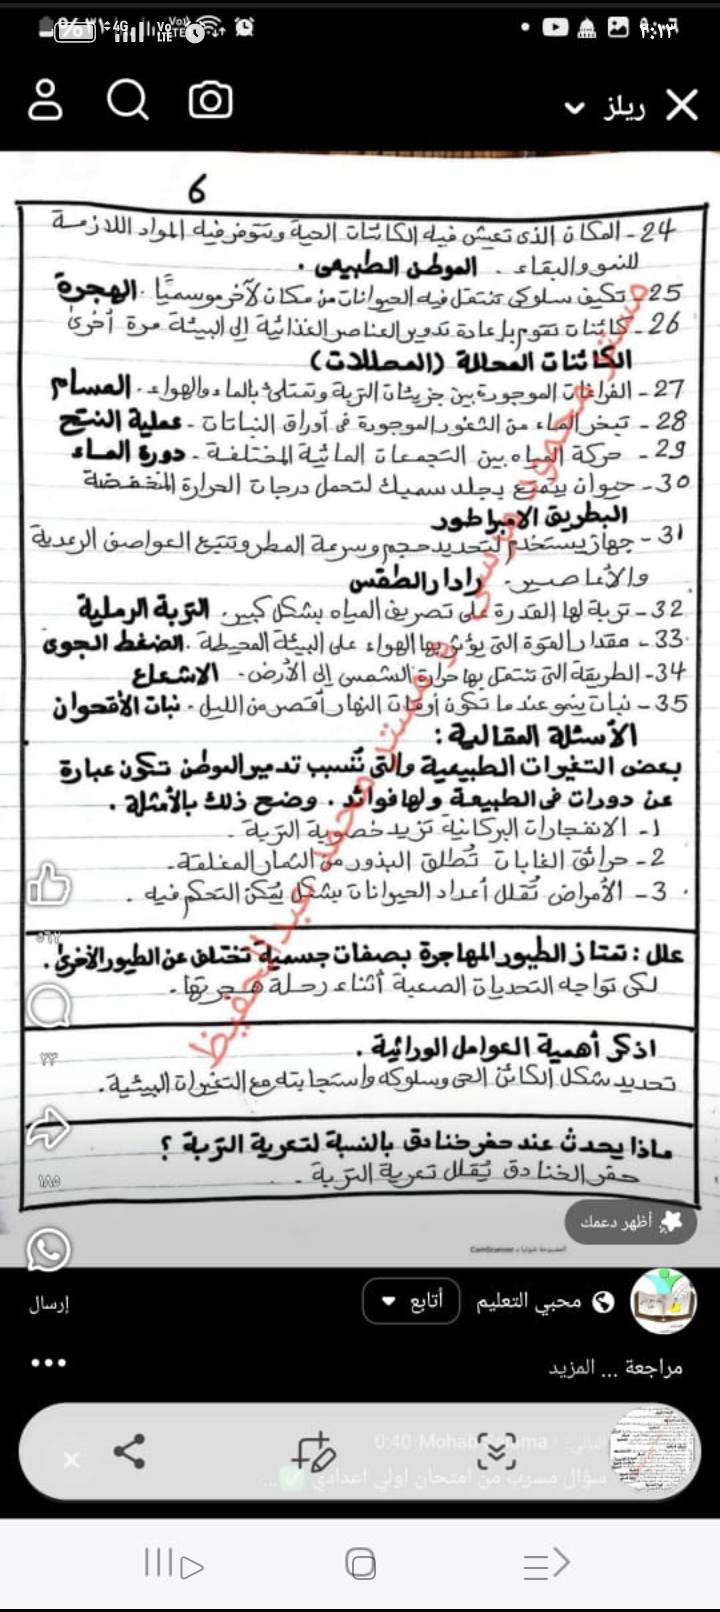 ٩:١٣
4G
ريلز
6
24 - المكان الذى تعيش فيه الكائنات الحية وتتوفر فيه المواد اللازمة
للنمو والبقاء . الموطن الطبيعى .
25 - تكيف سلوكى تنتقل فيه الحيوانات من مكان لآخر موسميًا . الهجرة
26 - كائنات تقوم بإعادة تدوير العناصر الغذائية إلى البيئة مرة أخرى
الكائنات المحالة (المحللات)
27 - الفراغات الموجودة بين جزيئات التربة وتمتلئ بالماء والهواء . المسام
28 - تبخر الماء من الثغور الموجودة فى أوراق النباتات - عملية النتح
29 - حركة المياه بين التجمعات المائية المختلفة - دورة الماء
30 - حيوان يتمتع بجلد سميك لتحمل درجات الحرارة المنخفضة
البطريق الإمبراطور
31 - جهاز يستخدم لتحديد حجم وسرعة المطر وتتبع العواصف الرعدية
والأعاصير . رادار الطقس
32 - تربة لها القدرة على تصريف المياه بشكل كبير . التربة الرملية
33 - مقدار القوة التى يؤثر بها الهواء على البيئة المحيطة . الضغط الجوى
34 - الطريقة التى تنتقل بها حرارة الشمس إلى الأرض - الاشعاع
35 - نبات ينمو عندما تكون أوقات النهار أقصر من الليل - نبات الأقحوان
الأسئلة المقالية :
بعض التغيرات الطبيعية والتى تُسبب تدمير الموطن تكون عبارة
عن دورات فى الطبيعة ولها فوائد . وضح ذلك بالأمثلة .
1 - الانفجارات البركانية تزيد خصوبة التربة .
2 - حرائق الغابات تُطلق البذور من الثمار المغلقة .
3 - الأمراض تُقلل أعداد الحيوانات بشكل يُمكن التحكم فيه .
علل : تمتاز الطيور المهاجرة بصفات جسمية تختلف عن الطيور الأخرى .
لكى تواجه التحديات الصعبة أثناء رحلة هجرتها .
اذكر أهمية العوامل الوراثية .
تحديد شكل الكائن الحى وسلوكه واستجابته مع التغيرات البيئية .
ماذا يحدث عند حفر خنادق بالنسبة لتعرية التربة ؟
حفر الخنادق يُقلل تعرية التربة .
مستر محمود مرسى و مستر محمد عبد الحفيظ
٢٣
١٨٥
أظهر دعمك
CamScanner
محبي التعليم
أتابع
إرسال
مراجعة ... المزيد
0:40 Mohab
سؤال مسرب من امتحان اولي اعدادي ✅...